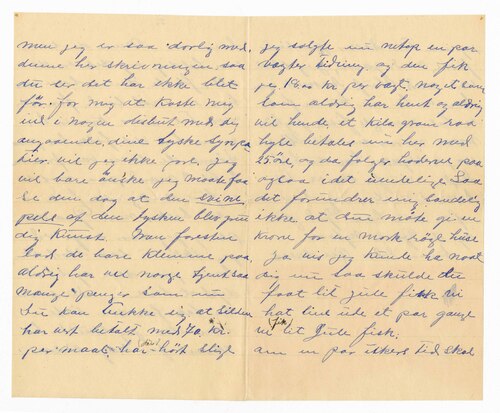 men jeg er saa dorlig med
denne her skrivningen saa
du ser det har ikke blet
før. for meg at kaste meg
ud i nogen desbut med dig
angaaende dine tyske sympa
tier vil jeg ikke jore jeg
vil bare ønske jeg maate faa
se den dag at den svine
pels af den tysken blev
dig kunst. Men
lad de bare klemme paa
aldrig har vel norge tjent saa
mange penger som nu
Du kan tenkke dig at Silden
har vert betalt med 70 kr.
per maal, har hørt
jeg solgte nu netop en par
vægter og den fik
jeg 18.00 kr per vægt, noget som
som aldrig har hent og aldrig
vil hende et kilo gram raa
hyse betales nu her med
25 øre, og da følger hoderne paa
ogsaa i det uendelige Saa
det forundrer mig
ikke at du maate gi en
krone for en mork røgt hüse
Ja vis jeg kunde ha naat
dig nu saa skulde du
faat lit Jule fisk vi
hat lint ude et par gange
ve et Jule fisk.
am en par ukers tid skal